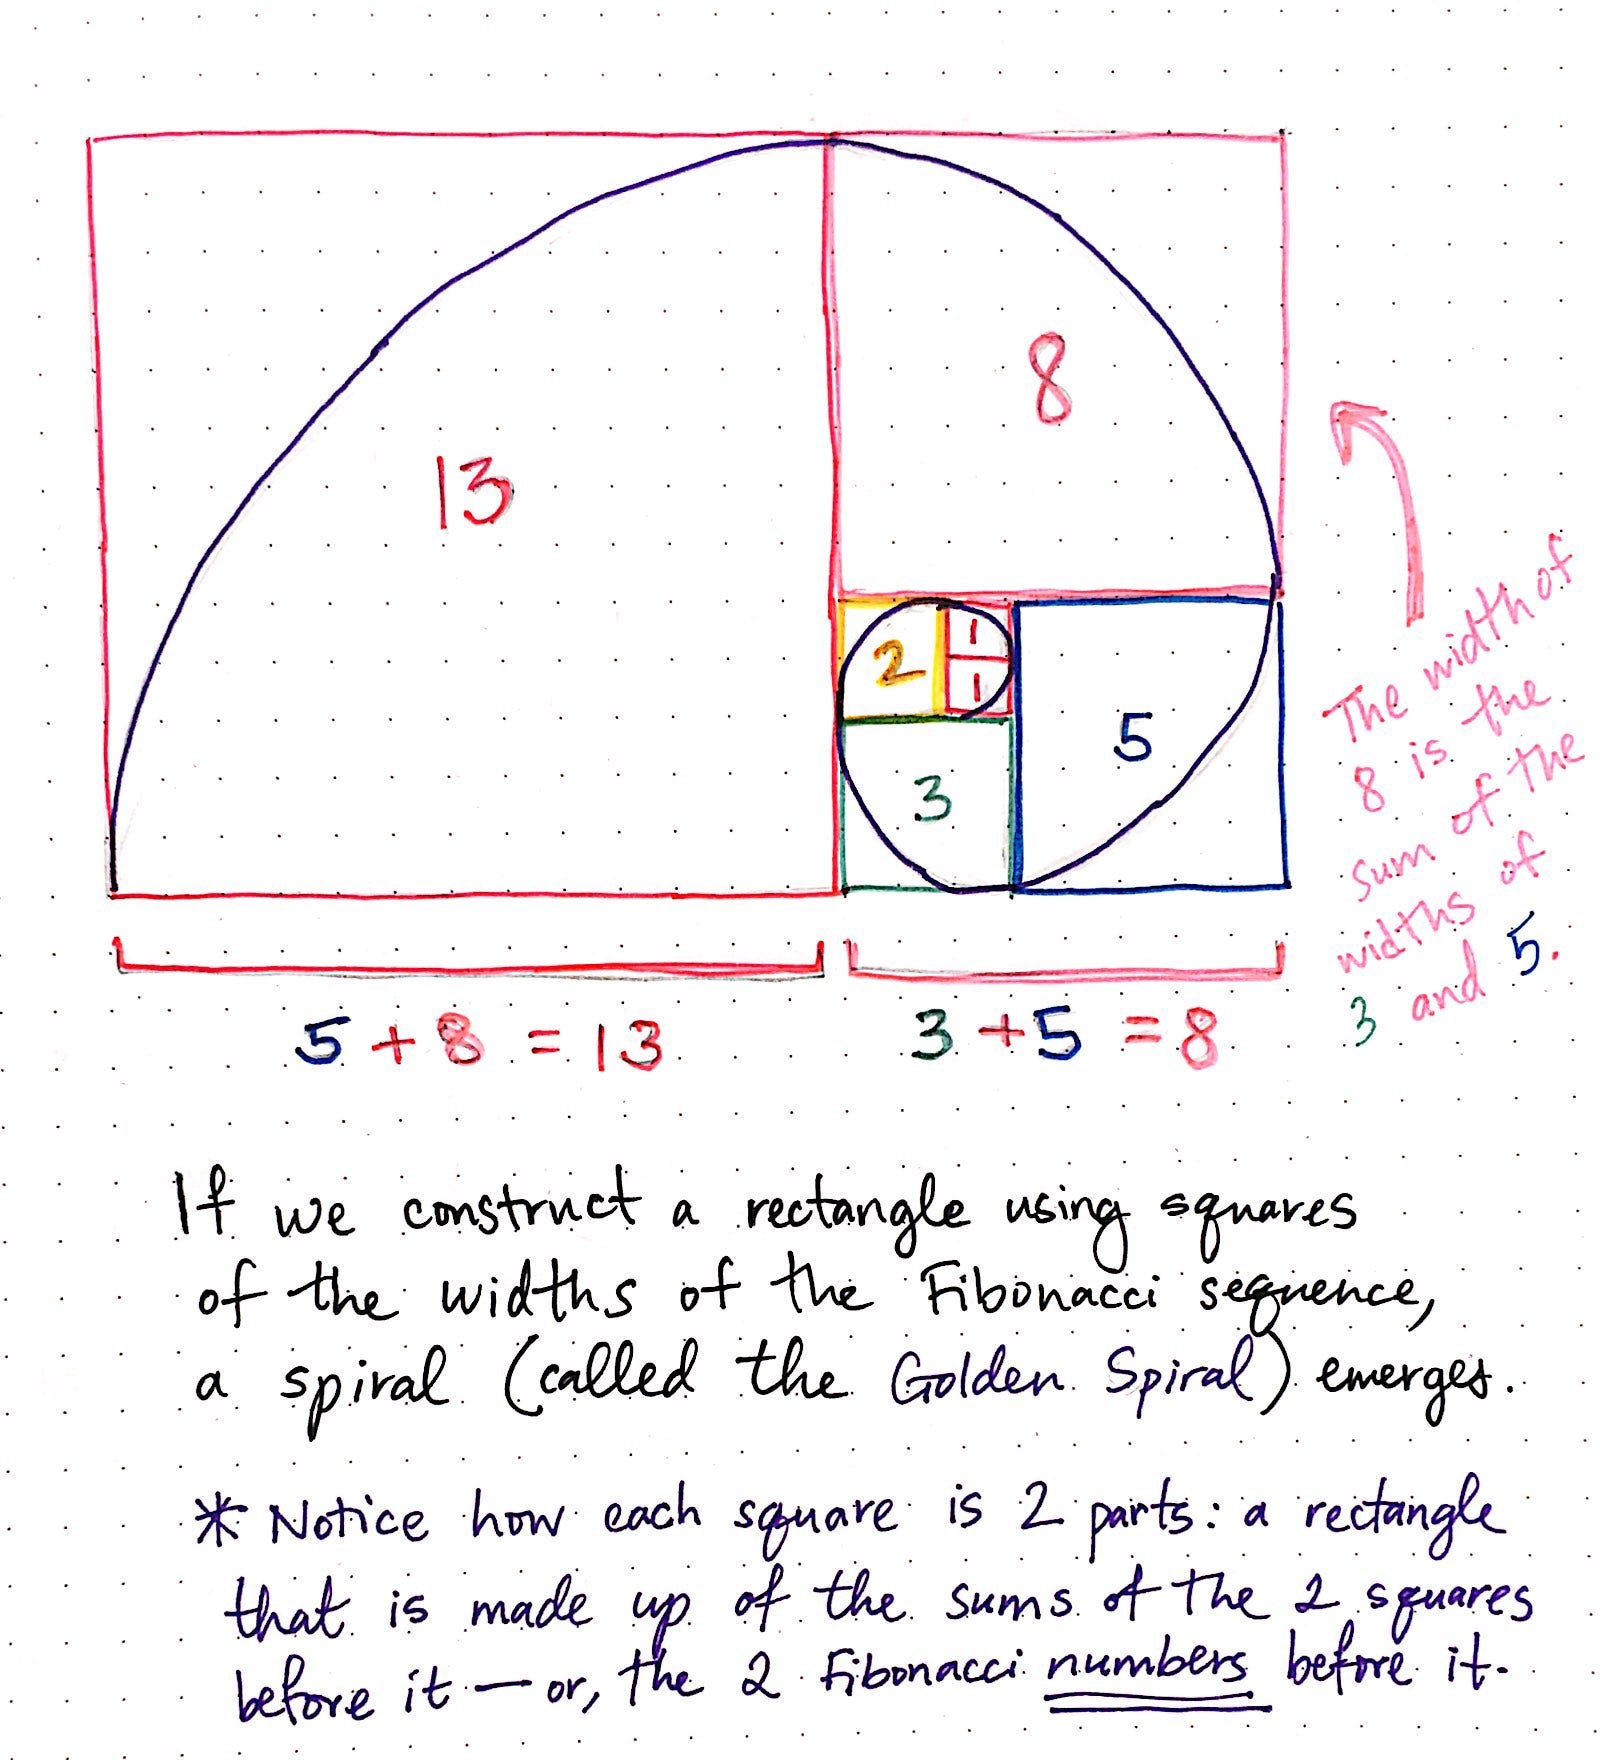 13
8
2
1
1
3
5
The width of
8 is the
sum of the
widths of
3 and 5.
5 + 8 = 13
3 + 5 = 8
If we construct a rectangle using squares
of the widths of the Fibonacci sequence,
a spiral (called the Golden Spiral) emerges.
* Notice how each square is 2 parts: a rectangle
that is made up of the sums of the 2 squares
before it — or, the 2 Fibonacci numbers before it.